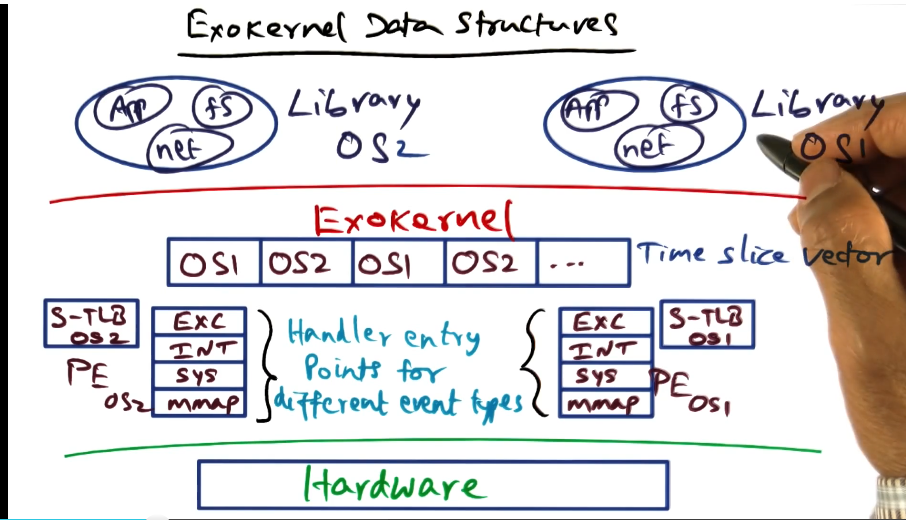 Exokernel Data Structures
App fs Library
net OS2
App fs Library
net OS1
Exokernel
OS1 OS2 OS1 OS2 ... Time slice vector
S-TLB
OS2
PE OS2
EXC
INT
SYS
mmap
Handler entry
Points for
different event types
EXC
INT
SYS
mmap
S-TLB
OS1
PE OS1
Hardware